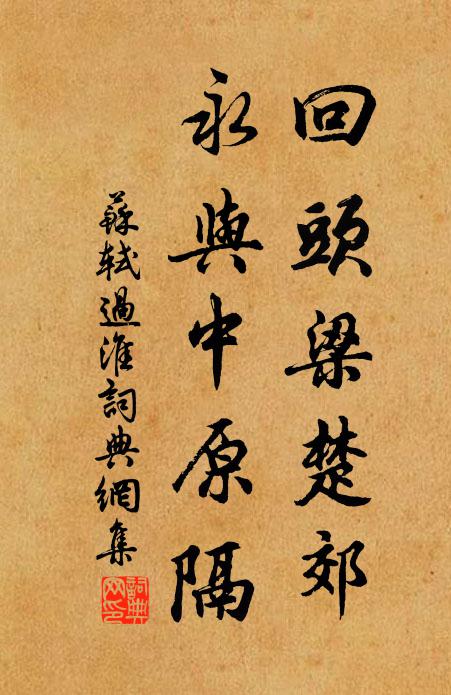 回頭梁楚郊
永與中原隔
蘇軾過淮詞典網集
詞典網印